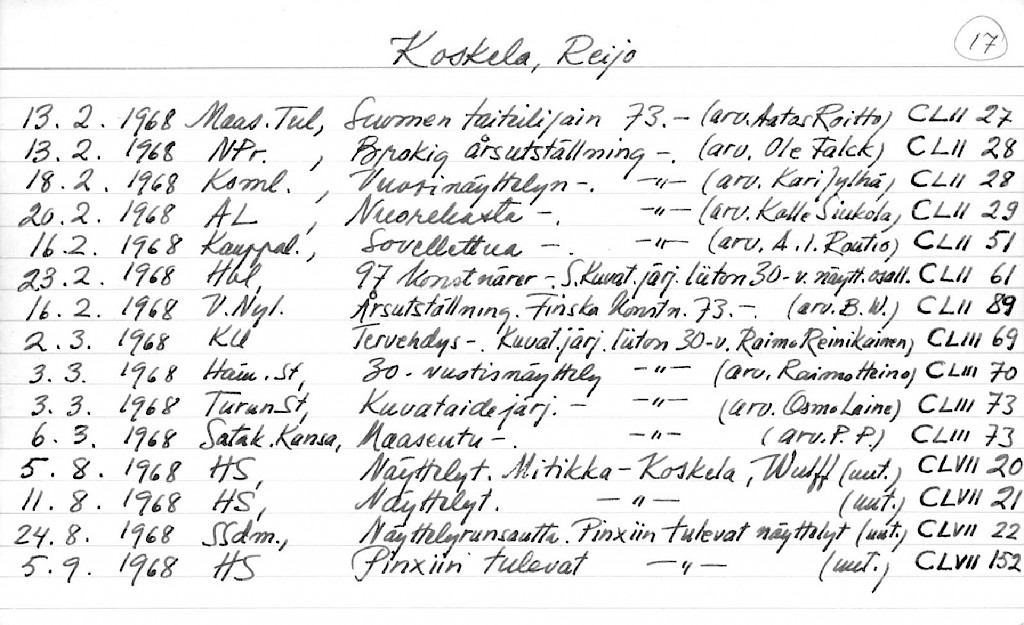 17
Koskela, Reijo
13. 2. 1968 Maas. Tul, Suomen taiteilijain 73. - (arv. Aatas Roitto) CLII 27
13. 2. 1968 NPr. , Brokig årsutställning -. (arv. Ole Falck) CLII 28
18. 2. 1968 Koml. , Vuosinäyttelyn -. -"- (arv. Kari Jylhä) CLII 28
20. 2. 1968 AL , Nuorekasta -. -"- (arv. Kalle Siukola) CLII 29
16. 2. 1968 Kauppal., Sovellettua -. -"- (arv. A. I. Routio) CLII 51
23. 2. 1968 Hbl, 97 konstnärer - S. Kuvat.järj. liiton 30-v. näytt. osall. CLII 61
16. 2. 1968 V. Nyl. Årsutställning. Finska Konstn. 73. -. (arv. B.W.) CLII 89
2. 3. 1968 KU Tervehdys -. Kuvat.järj. liiton 30-v. Raimo Reinikainen) CLIII 69
3. 3. 1968 Häm. St, 30-vuotisnäyttely -"- (arv. Raimo Heino) CLIII 70
3. 3. 1968 Turun St, Kuvataidejärj. - -"- (arv. Osmo Laine) CLIII 73
6. 3. 1968 Satak. Kansa, Maaseutu -. -"- (arv. P. P.) CLIII 73
5. 8. 1968 HS, Näyttelyt. Mitikka-Koskela, Wulff (uut.) CLVII 20
11. 8. 1968 HS, Näyttelyt. -"- (uut.) CLVII 21
24. 8. 1968 SSdm., Näyttelyrunsautta. Pinxiin tulevat näyttelyt (uut.) CLVII 22
5. 9. 1968 HS Pinxiin tulevat -"- (uut.) CLVII 152